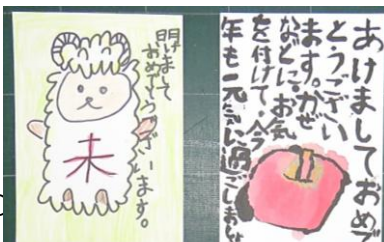 明けまして
おめでとうございます。
未
あけましておめで
とうござい
ます。かぜ
などに、お気
を付けて、今
年も元気に過ごしましょ